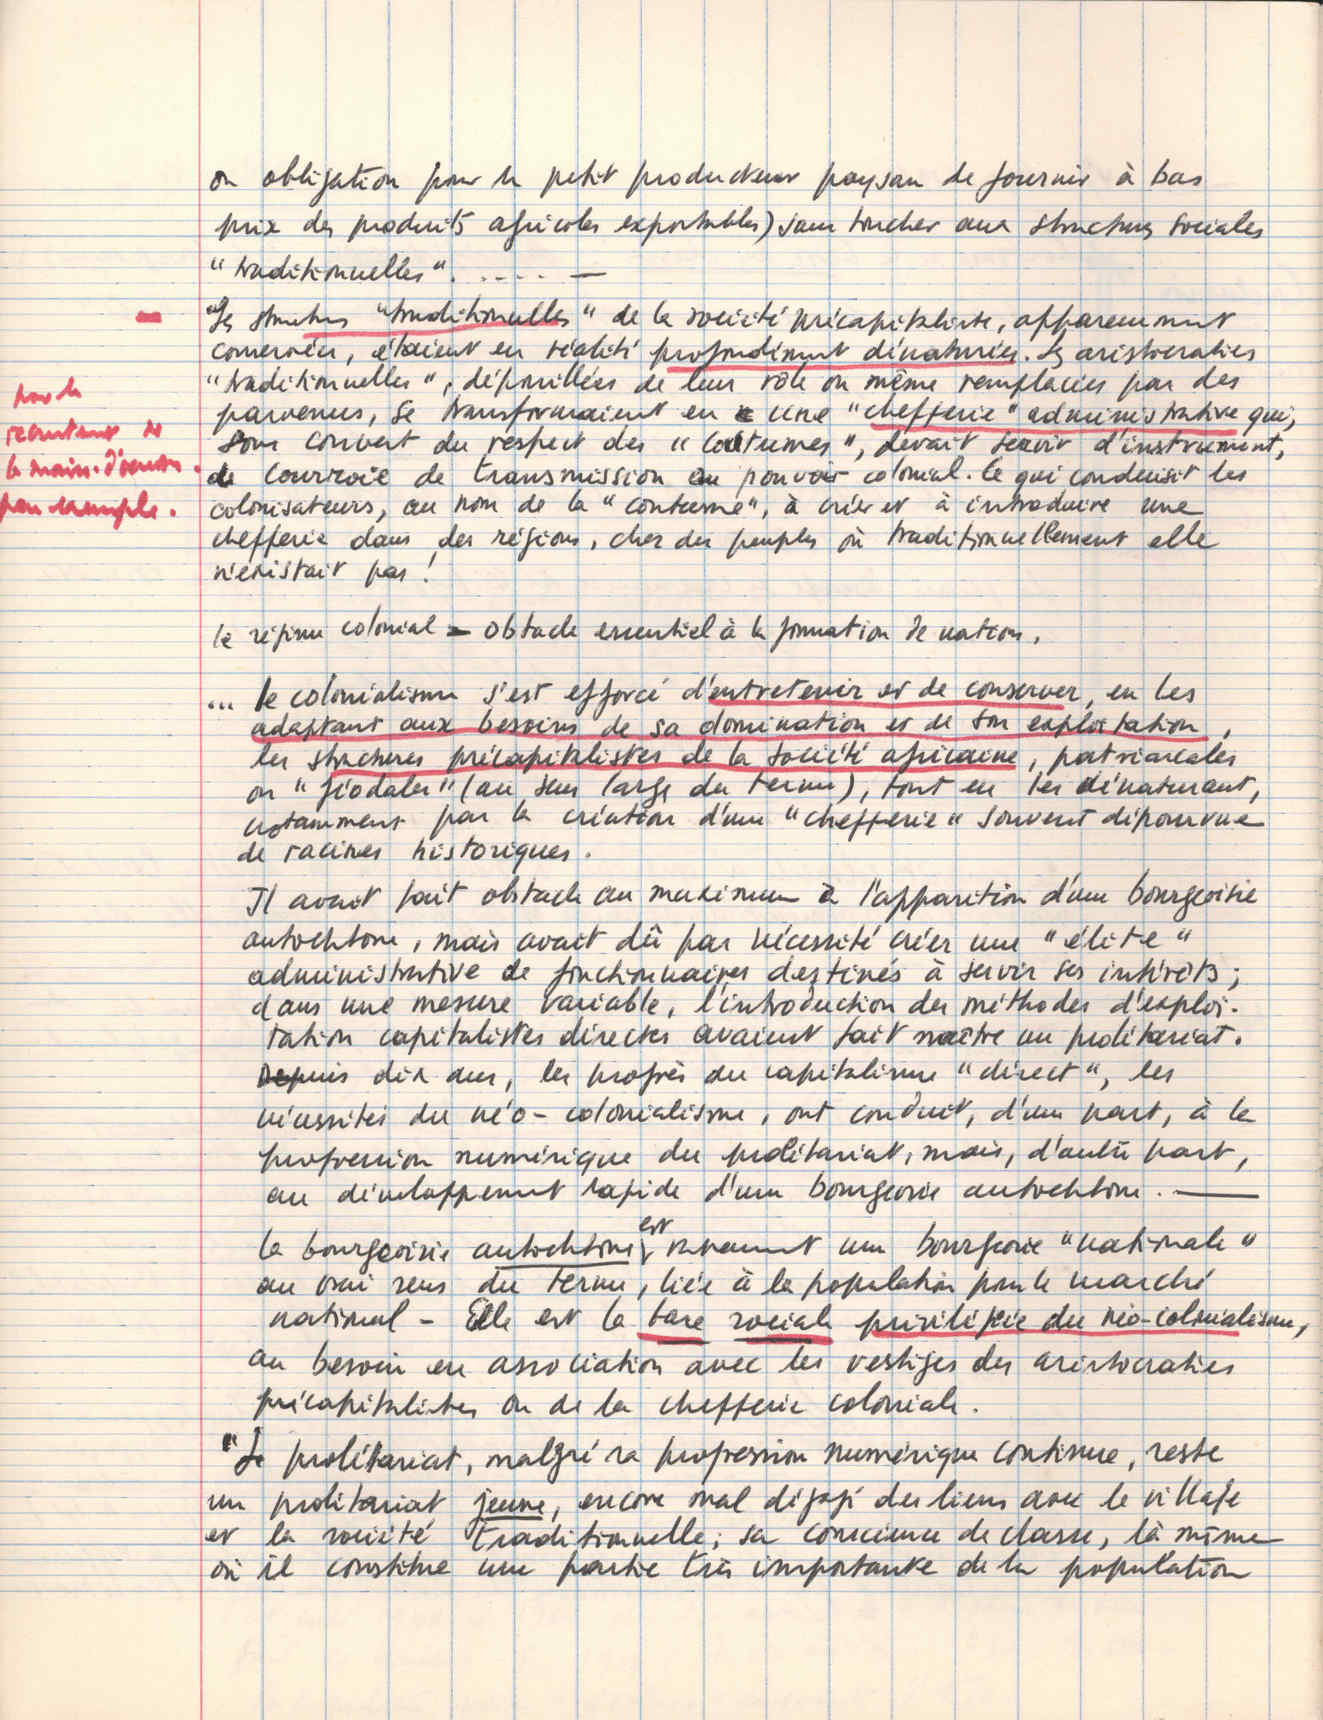 ou obligation pour le petit producteur paysan de fournir à bas
prix des produits agricoles exportables) sans toucher aux structures sociales
"traditionnelles". . . . . . —
"Les structures "traditionnelles" de la société précapitaliste, apparemment
conservées, étaient en réalité profondément dénaturées. Les aristocraties
"traditionnelles", dépouillées de leur rôle ou même remplacées par des
parvenus, se transformaient en une "chefferie" administrative qui,
sous couvert du respect des "Coutumes", devait servir d'instrument,
de courroie de transmission au pouvoir colonial. Ce qui conduisit les
colonisateurs, au nom de la "coutume", à créer et à introduire une
chefferie dans des régions, chez des peuples où traditionnellement elle
n'existait pas !
pour le
recrutement de
la main-d'œuvre
par exemple.
le régime colonial = obstacle essentiel à la formation de nations.
... le colonialisme s'est efforcé d'entretenir et de conserver, en les
adaptant aux besoins de sa domination et de son exploitation,
les structures précapitalistes de la société africaine, patriarcales
ou "féodales" (au sens large du terme), tout en les dénaturant,
notamment par la création d'une "chefferie" souvent dépourvue
de racines historiques.
Il avait fait obstacle au maximum à l'apparition d'une bourgeoisie
autochtone, mais avait dû par nécessité créer une "élite"
administrative de fonctionnaires destinés à servir ses intérêts ;
dans une mesure variable, l'introduction des méthodes d'exploi-
tation capitalistes directes avaient fait naître un prolétariat.
Depuis dix ans, les progrès du capitalisme "direct", les
nécessités du néo-colonialisme, ont conduit, d'une part, à la
progression numérique du prolétariat, mais, d'autre part,
au développement rapide d'une bourgeoisie autochtone. —
la bourgeoisie autochtone est rarement une bourgeoisie "nationale"
au vrai sens du terme, liée à la population pour le marché
national - Elle est la base sociale privilégiée du néo-colonialisme,
au besoin en association avec les vestiges des aristocraties
précapitalistes ou de la chefferie coloniale.
"Le prolétariat, malgré sa progression numérique continue, reste
un prolétariat jeune, encore mal dégagé des liens avec le village
et la société traditionnelle ; sa conscience de classe, là même
où il constitue une partie très importante de la population